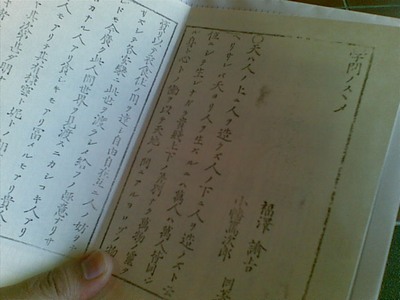 學問ノスヽメ
福澤諭吉
小幡篤次郎 同
○天ハ人ノ上ニ人ヲ造ラズ人ノ下ニ人ヲ造ラズト云
ヘリサレバ天ヨリ人ヲ生ズルニハ萬人ハ萬人皆同ジ
位ニシテ生レナガラ貴賤上下ノ差別ナク萬物ノ靈タ
ル身ト心トノ働ヲ以テ天地ノ間ニアルヨロヅノ物
資リ以テ衣食住ノ用ヲ達シ自由自在互ニ人ノ妨ヲ
ナサズシテ各安樂ニ此世ヲ渡ラシメ給フノ趣意ナリサ
レドモ今廣ク此人間世界ヲ見渡スニカシコキ人アリ
ロカナル人アリ貧シキモアリ富メルモアリ貴人